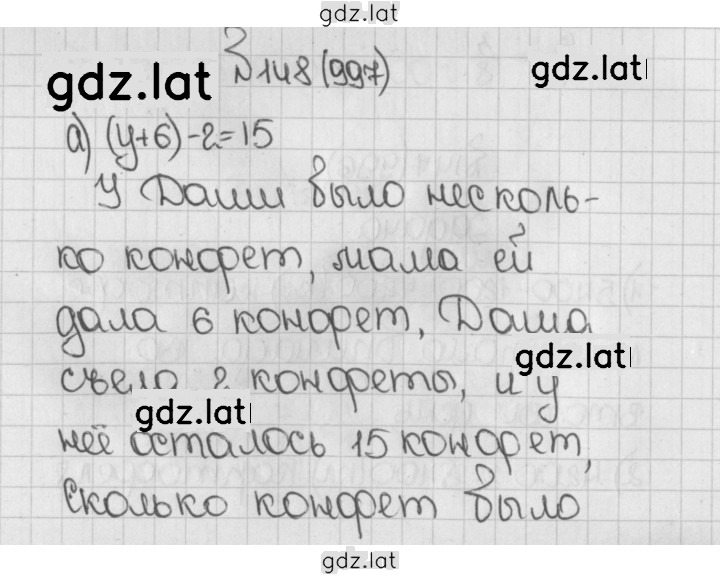 gdz.lat
№148(997)
gdz.lat
gdz.lat
а) (у+6)-2=15
У Даши было несколь-
ко конфрет, мама ей
дала 6 конфрет, Даша
gdz.lat
съела 2 конфреты, и у
gdz.lat
неё осталось 15 конфрет,
Сколько конфрет было
gdz.lat